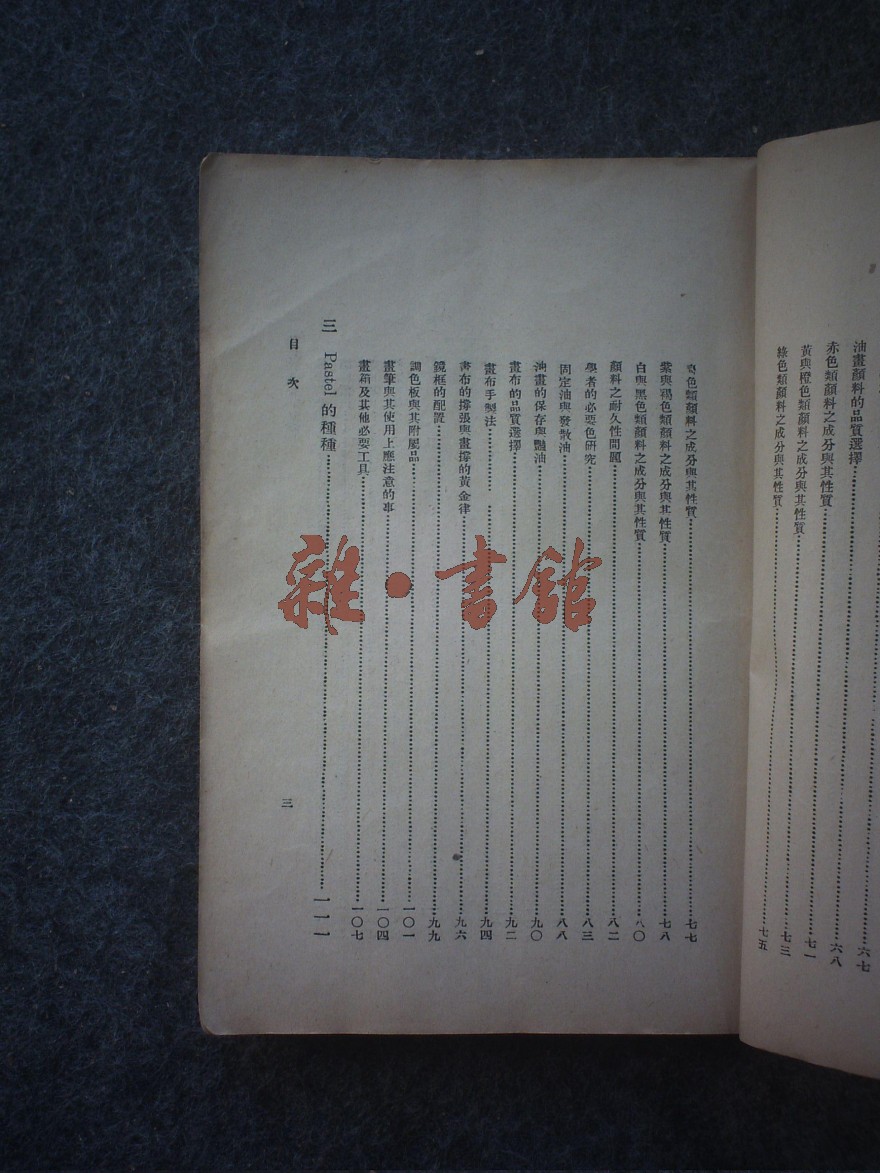 油畫顏料的品質選擇……六七
赤色類顏料之成分與其性質……六八
黃與橙色類顏料之成分與其性質……七一
綠色類顏料之成分與其性質……七三
七五
色類顏料之成分與其性質……七七
紫與褐色類顏料之成分與其性質……七八
白與黑色類顏料之成分與其性質……八〇
顏料之耐久性問題……八二
學者的必要色研究……八三
固定油與發散油……八八
油畫的保存與豔油……九〇
畫布的品質選擇……九二
畫布手製法……九四
畫布的撐張與畫撐的黃金律……九六
鏡框的配置……九九
調色板與其附屬品……一〇一
畫筆與其使用上應注意的事……一〇四
畫箱及其他必要工具……一〇七
三 Pastel 的種種……一一一
目次
三
雜·書館